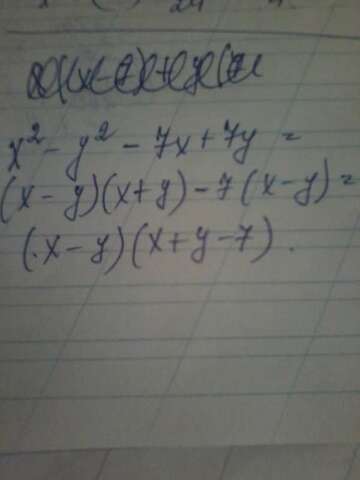 24
x² - y² - 7x + 7y =
(x - y)(x + y) - 7(x - y) =
(x - y)(x + y - 7).